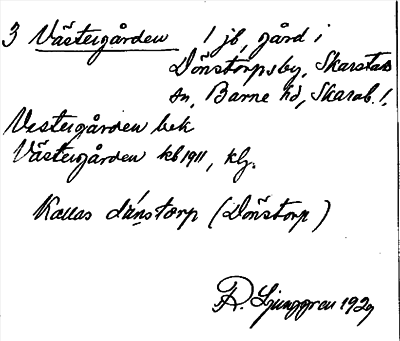 3 Västergården 1 jb, gård i
Dönstorpsby, Skarstads
sn, Barne hd, Skarab. l,
Vestergården bek
Västergården kb 1911, klg.
Kallas dúnstorp (Dönstorp)
R. Ljunggren 1929